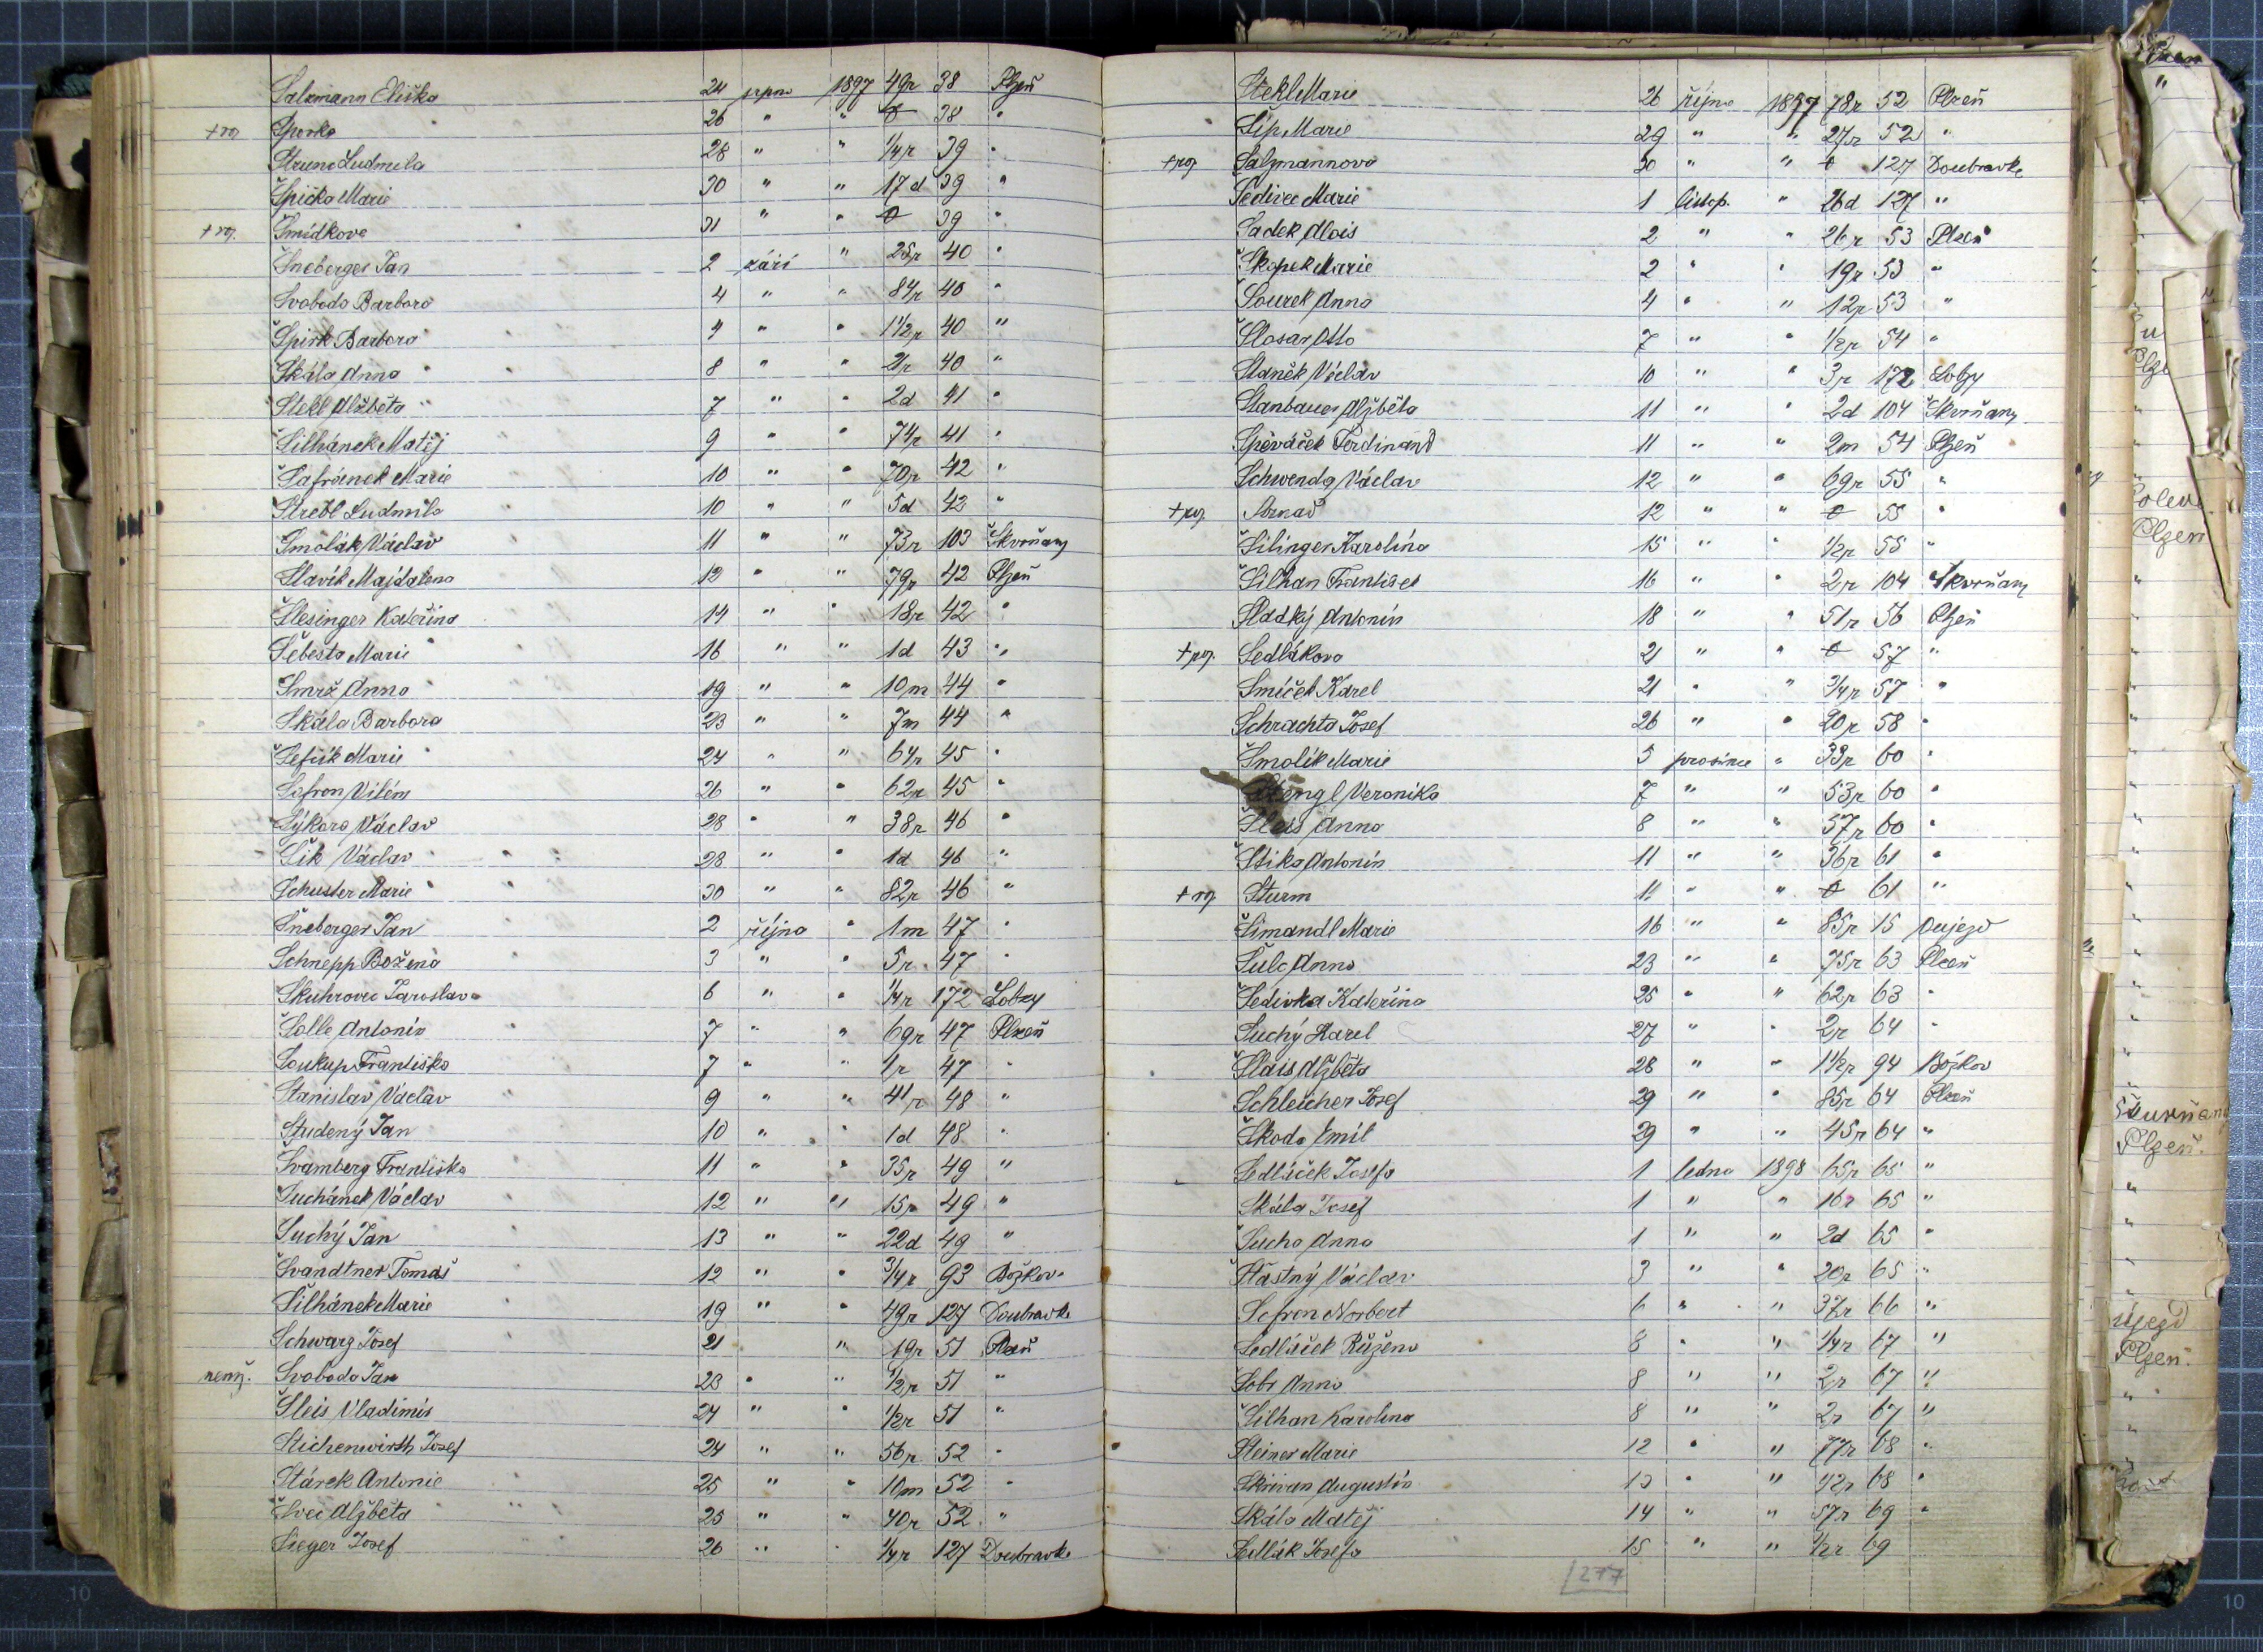 Salzmann Eliška 24 srpna 1897 49r 38 Plzeň
+roz. Sperka 26 " " 0 38 "
Strunc Ludmila 28 " " 1/4r 39 "
Špička Marie 30 " " 17d 39 "
+roz. Šmídkova 31 " " 0 39 "
Šneberger Jan 2 září " 25r 40 "
Svoboda Barbora 4 " " 84r 40 "
Špirk Barbora 4 " " 1 1/2r 40 "
Skála Anna 8 " " 2r 40 "
Štekl Alžběta 7 " " 2d 41 "
Šilhánek Matěj 9 " " 74r 41 "
Šafránek Marie 10 " " 70r 42 "
Strebl Ludmila 10 " " 5d 42 "
Smolák Václav 11 " " 73r 103 Skvrňany
Slavík Majdalena 12 " " 79r 42 Plzeň
Šlesinger Kateřina 14 " " 18r 42 "
Šebesta Marie 16 " " 1d 43 "
Smrž Anna 19 " " 10m 44 "
Skála Barbora 23 " " 7m 44 "
Šefčík Marie 24 " " 64r 45 "
Šafron Vilém 26 " " 62r 45 "
Sýkora Václav 28 " " 38r 46 "
Šik Václav 28 " " 1d 46 "
Schuster Marie 30 " " 82r 46 "
Šneberger Jan 2 října " 1m 47 "
Schnepp Božena 3 " " 5r 47 "
Skuhrovec Jaroslav 6 " " 1/4r 172 Lobzy
Solle Antonín 7 " " 69r 47 Plzeň
Soukup Františka 7 " " 1r 47 "
Stanislav Václav 9 " " 41r 48 "
Studený Jan 10 " " 1d 48 "
Švamberg Františka 11 " " 35r 49 "
Suchánek Václav 12 " " 15r 49 "
Suchý Jan 13 " " 22d 49 "
Švandtner Tomáš 12 " " 3/4r 93 Božkov
Šilhánek Marie 19 " " 49r 127 Doubravka
Schwarz Josef 21 " 19r 51 Plzeň
Svoboda Jan 23 " " 1/2r 51 "
Šleis Vladimír 24 " " 1/2r 51 "
Stichenwirth Josef 24 " " 56r 52 "
Stárek Antonie 25 " " 10m 52 "
Švec Alžběta 25 " " 40r 52 "
Sieger Josef 26 " " 1/4r 127 Doubravka
Štekl Marie 26 října 1897 78r 52 Plzeň
Šíp Marie 29 " " 27r 52 "
+roz Salzmannova 30 " " 0 127 Doubravka
Šedivec Marie 1 listop. " 26d 127 "
Sadek Alois 2 " " 26r 53 Plzeň
Skopek Marie 2 " " 19r 53 "
Šourek Anna 4 " " 12r 53 "
Šlosar Otto 7 " " 1/2r 54 "
Staněk Václav 10 " " 3r 172 Lobzy
Stanbauer Alžběta 11 " " 2d 104 Skvrňany
Spěváček Ferdinand 11 " " 2m 54 Plzeň
Schwenda Václav 12 " " 69r 55 "
+roz. Strnad 12 " " 0 55 "
Šilinger Karolína 15 " " 1/2r 55 "
Šilhan František 16 " " 2r 104 Skvrňany
Sladký Antonín 18 " " 51r 56 Plzeň
+roz. Sedlákova 21 " " 0 57 "
Smíček Karel 21 " " 3/4r 57 "
Schrachta Josef 26 " " 20r 58 "
Šmolík Marie 5 prosince " 33r 60 "
Stengl Veronika 7 " " 53r 60 "
Šlais Anna 8 " " 57r 60 "
Štika Antonín 11 " " 36r 61 "
+roz Sturm 11 " " 0 61 "
Šimandl Marie 16 " " 85r 15 Oujezd
Šulc Anna 23 " " 75r 63 Plzeň
Šedivka Kateřina 25 " " 62r 63 "
Suchý Karel 27 " " 2r 64 "
Šlais Alžběta 28 " " 1 1/2r 94 Božkov
Schleicher Josef 29 " " 85r 64 Plzeň
Škoda Emil 29 " " 45r 64 "
Sedláček Josefa 1 ledna 1898 65r 65 "
Skála Josef 1 " " 16r 65 "
Sucha Anna 1 " " 2d 65 "
Šťastný Václav 3 " " 20r 65 "
Šefron Norbert 6 " " 37r 66 "
Sedláček Růžena 8 " " 1/4r 67 "
Sobr Anna 8 " " 2r 67 "
Šilhan Karolina 8 " " 2r 67 "
Steiner Marie 12 " " 77r 68 "
Skřivan Augustin 13 " " 42r 68 "
Skála Matěj 14 " " 57r 69 "
Sedlák Josefa 15 " " 1/2r 69
277
Plzeň
Skvrňany
Plzeň.
Újezd
Plzeň.